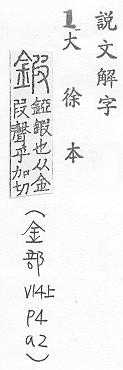 說文解字
1大徐本
鍜
錏鍜也从金
叚聲乎加切
(金部V14上P4a2)